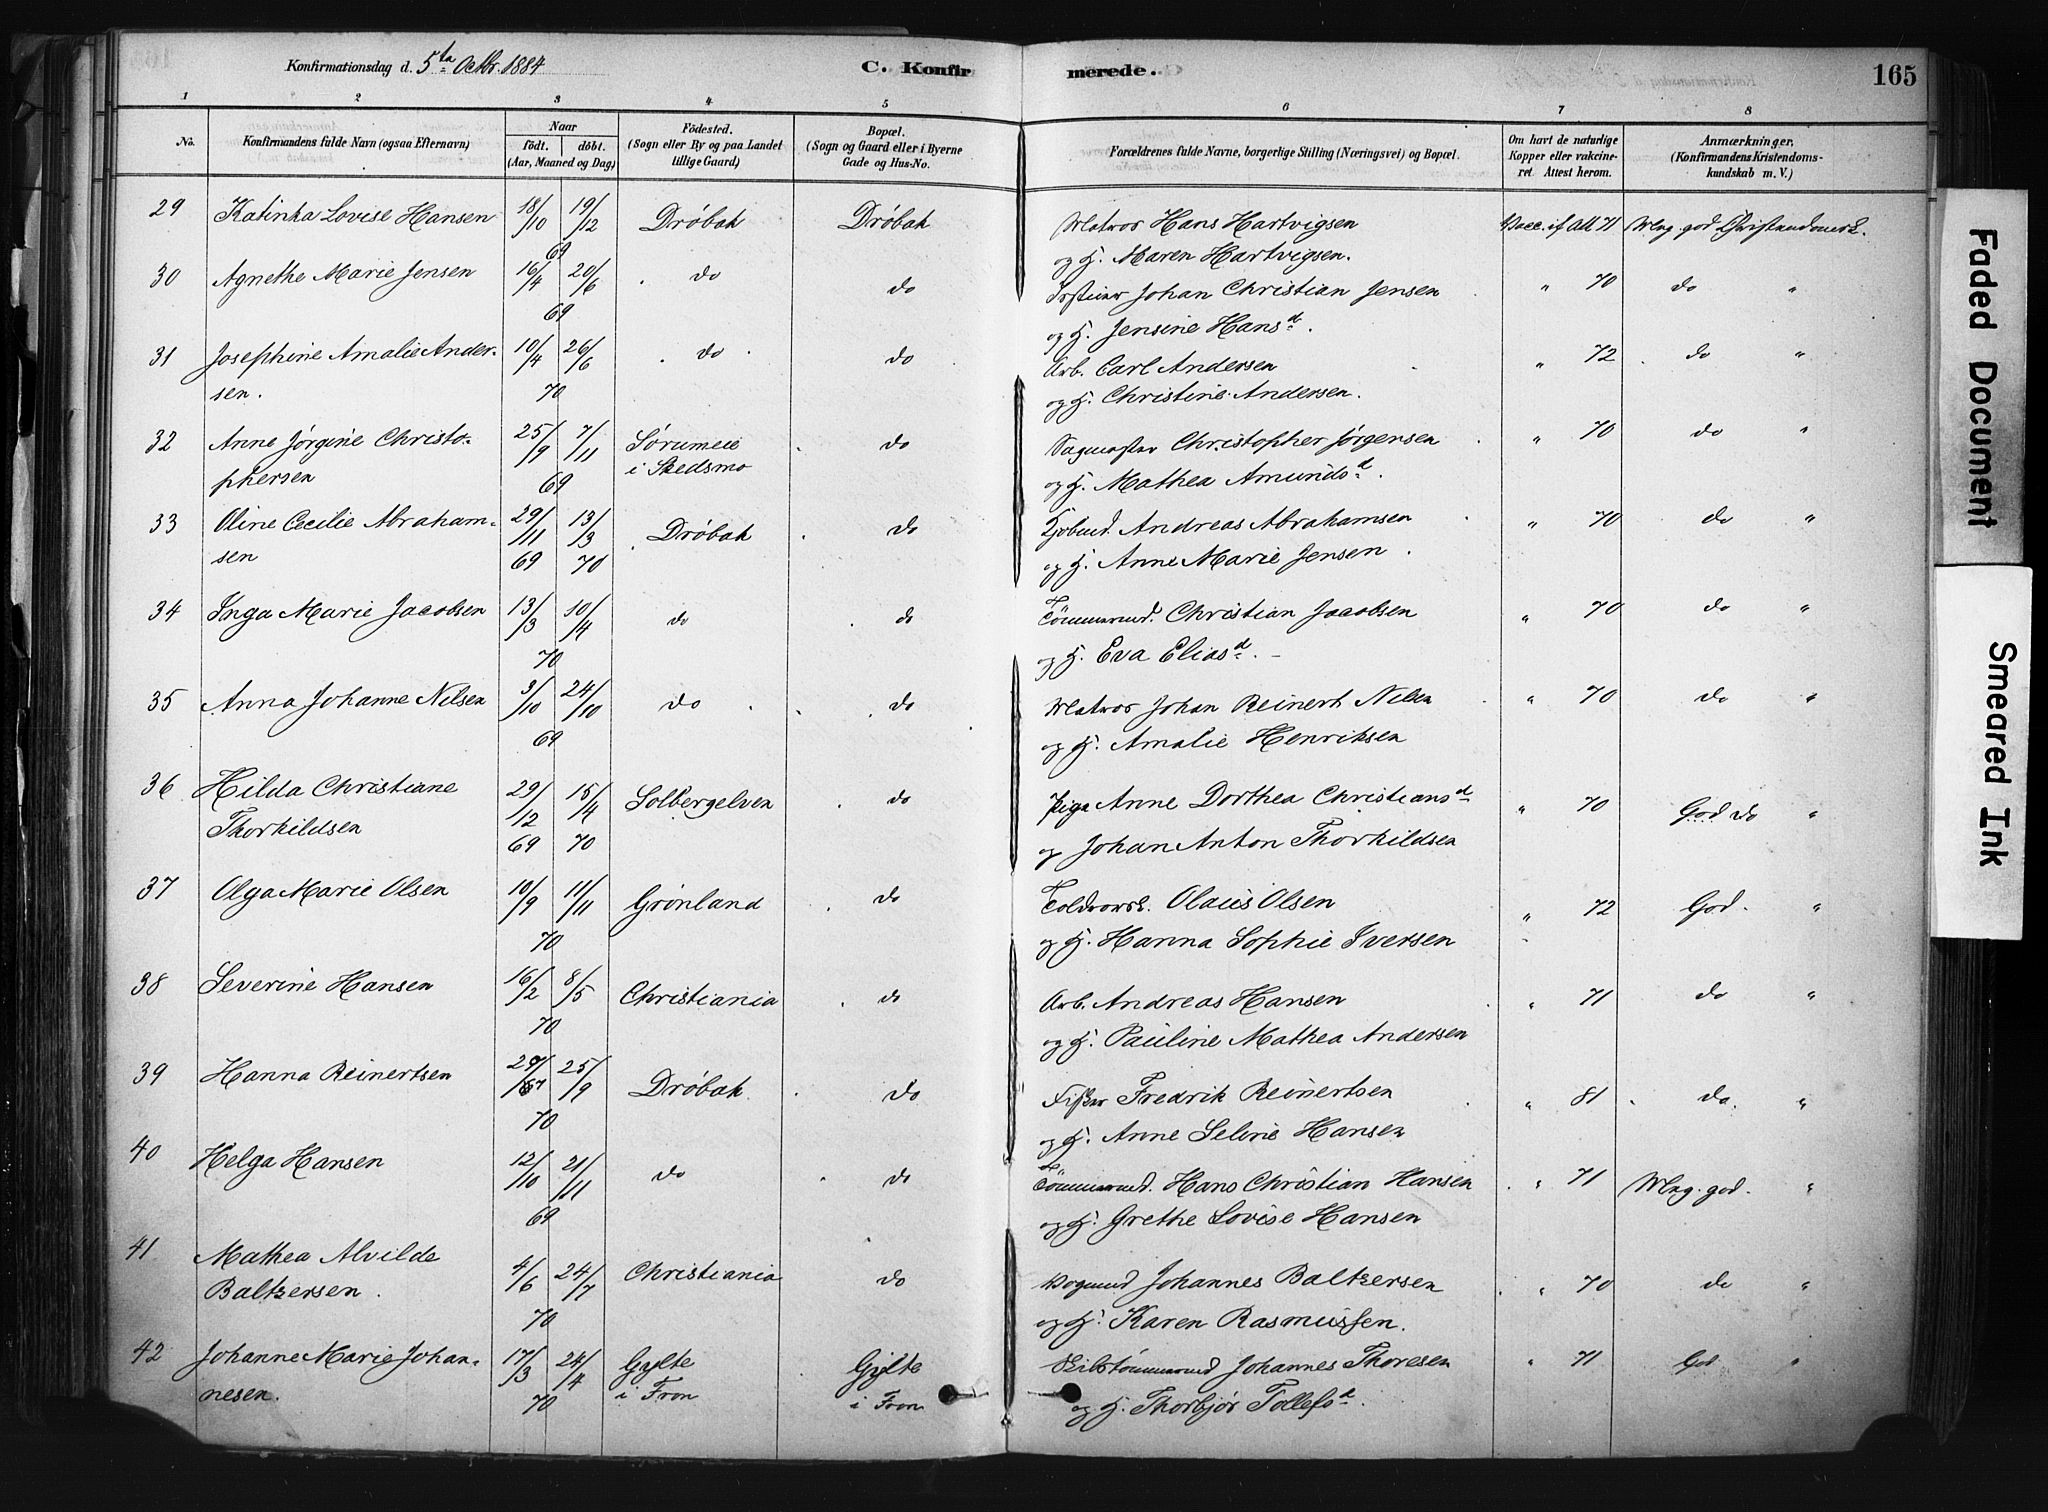 Konfirmationsdag d. 5te Octbr. 1884
C. Konfirmerede.
165
1 2 3 4 5 6 7 8
No.
Konfirmandens fulde Navn (ogsaa Efternavn)
Naar
født. døbt.
(Aar, Maaned og Dag)
Fødested.
(Sogn eller By og paa Landet
tillige Gaard)
Bopæl.
(Sogn og Gaard eller i Byerne
Gade og Hus-No.
Forældrenes fulde Navne, borgerlige Stilling (Næringsvei) og Bopæl.
Om havt de naturlige
Kopper eller vakcine-
ret Attest herom.
Anmærkninger.
(Konfirmandens Kristendoms-
kundskab m. V.)
29 Katinka Lovise Hansen 18/10 19/12 Drøbak Drøbak Matros Hans Hartvigsen Vacc. if Att 71 Mg. god Christendomsk.
69 og H. Maren Hartvigsen.
30 Agnethe Marie Jensen 16/4 20/6 do do Johan Christian Jensen " 70 do "
69 og H. Jensine Hansd.
31 Josephine Amalie Ander- 10/4 26/6 do do Arb. Carl Andersen " 72 do "
sen. 70 og H. Christine Andersen.
32 Anne Jørgine Christo- 25/9 7/11 Sørumeie do Sagmester Christopher Jørgensen " 70 do "
phersen 69 i Skedsmo og H. Mathea Amundsd.
33 Oline Cecilie Abraham- 29/11 13/3 Drøbak do Kjøbmd. Andreas Abrahamsen " 70 do "
sen 69 70 og H. Anne Marie Jensen.
34 Inga Marie Jacobsen 13/3 10/4 do do Tømmermd. Christian Jacobsen " 70 do "
70 og H. Eva Eliasd. -
35 Anna Johanne Nilsen 3/10 24/10 do do Matros Johan Reinert Nilsen " 70 do "
69 og H. Amalie Henriksen
36 Hilda Christiane 29/12 15/4 Solbergelven do Pige Anne Dorthea Christiansd " 70 God do "
Thorkildsen 69 70 og Johan Anton Thorkildsen
37 Olga Marie Olsen 10/9 11/11 Grønland do Toldrorsk. Olaus Olsen " 72 God. "
70 og H. Hanna Sophie Iversen
38 Severine Hansen 16/2 8/5 Christiania do Arb. Andreas Hansen " 71 do "
70 og H. Pauline Mathea Andersen
39 Hanna Reinertsen 29/ 25/9 Drøbak do Fisker Fredrik Reinertsen " 81 do. "
70 og H. Anne Seline Hansen
40 Helga Hansen 12/10 21/11 do do Tømmermd. Hans Christian Hansen " 71 Mg. god. "
69 og H. Grethe Lovise Hansen
41 Mathea Alvilde 4/6 24/7 Christiania do Vognmd Johannes Baltzersen " 70 do "
Baltzersen. 70 og H. Karen Rasmussen.
42 Johanne Marie Johan- 17/3 24/4 Gylte Gylte Skibstømmermd Johannes Thoresen " 71 God "
nesen. 70 i Fron i Fron og H. Thorbjør Tollefsd.
Faded Document
Smeared Ink